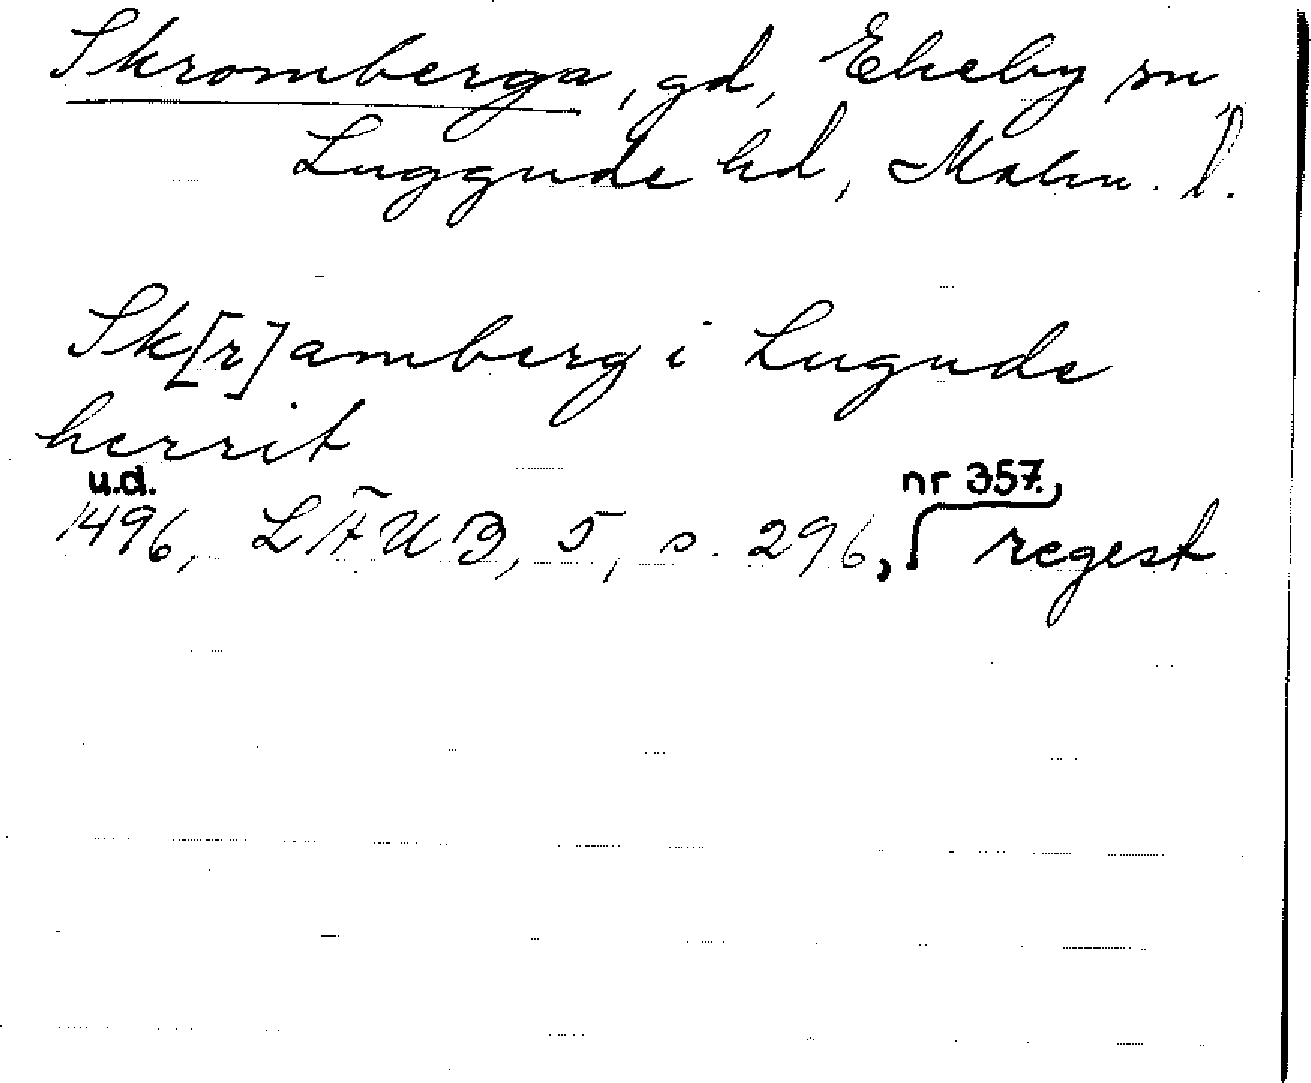 Skromberga, gd, Ekeby sn
Luggude hd, Malm. l.
Sk[r]amberg i Lugude
herrit
u.d.
nr 357.
1496, LÄUB, 5, s. 296, regest